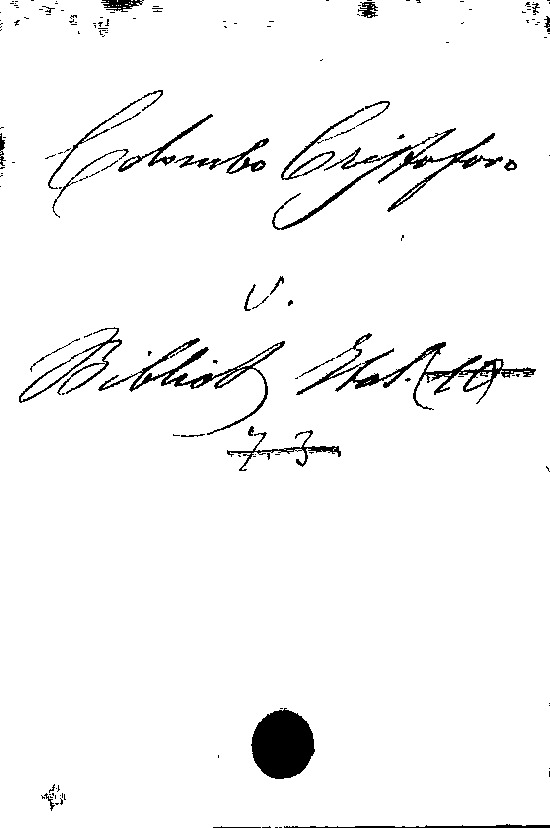 Colombo Cristoforo
v.
Bibliot. Ital.
7. 3